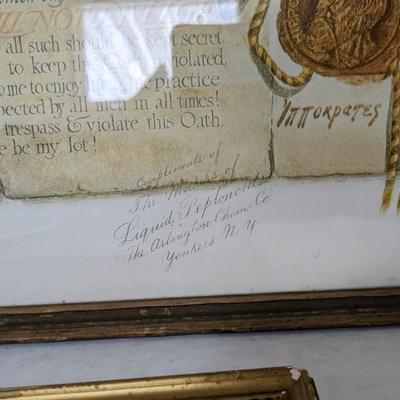 ILL NOT
all such should be kept secret.
to keep this Oath unviolated,
to me to enjoy life & the practice
respected by all men in all times!
trespass & violate this Oath
e be my lot!
Ἱπποκρατες
Compliments of
The Makers of
Liquid Peptonoids
The Arlington Chem. Co.
Yonkers N Y